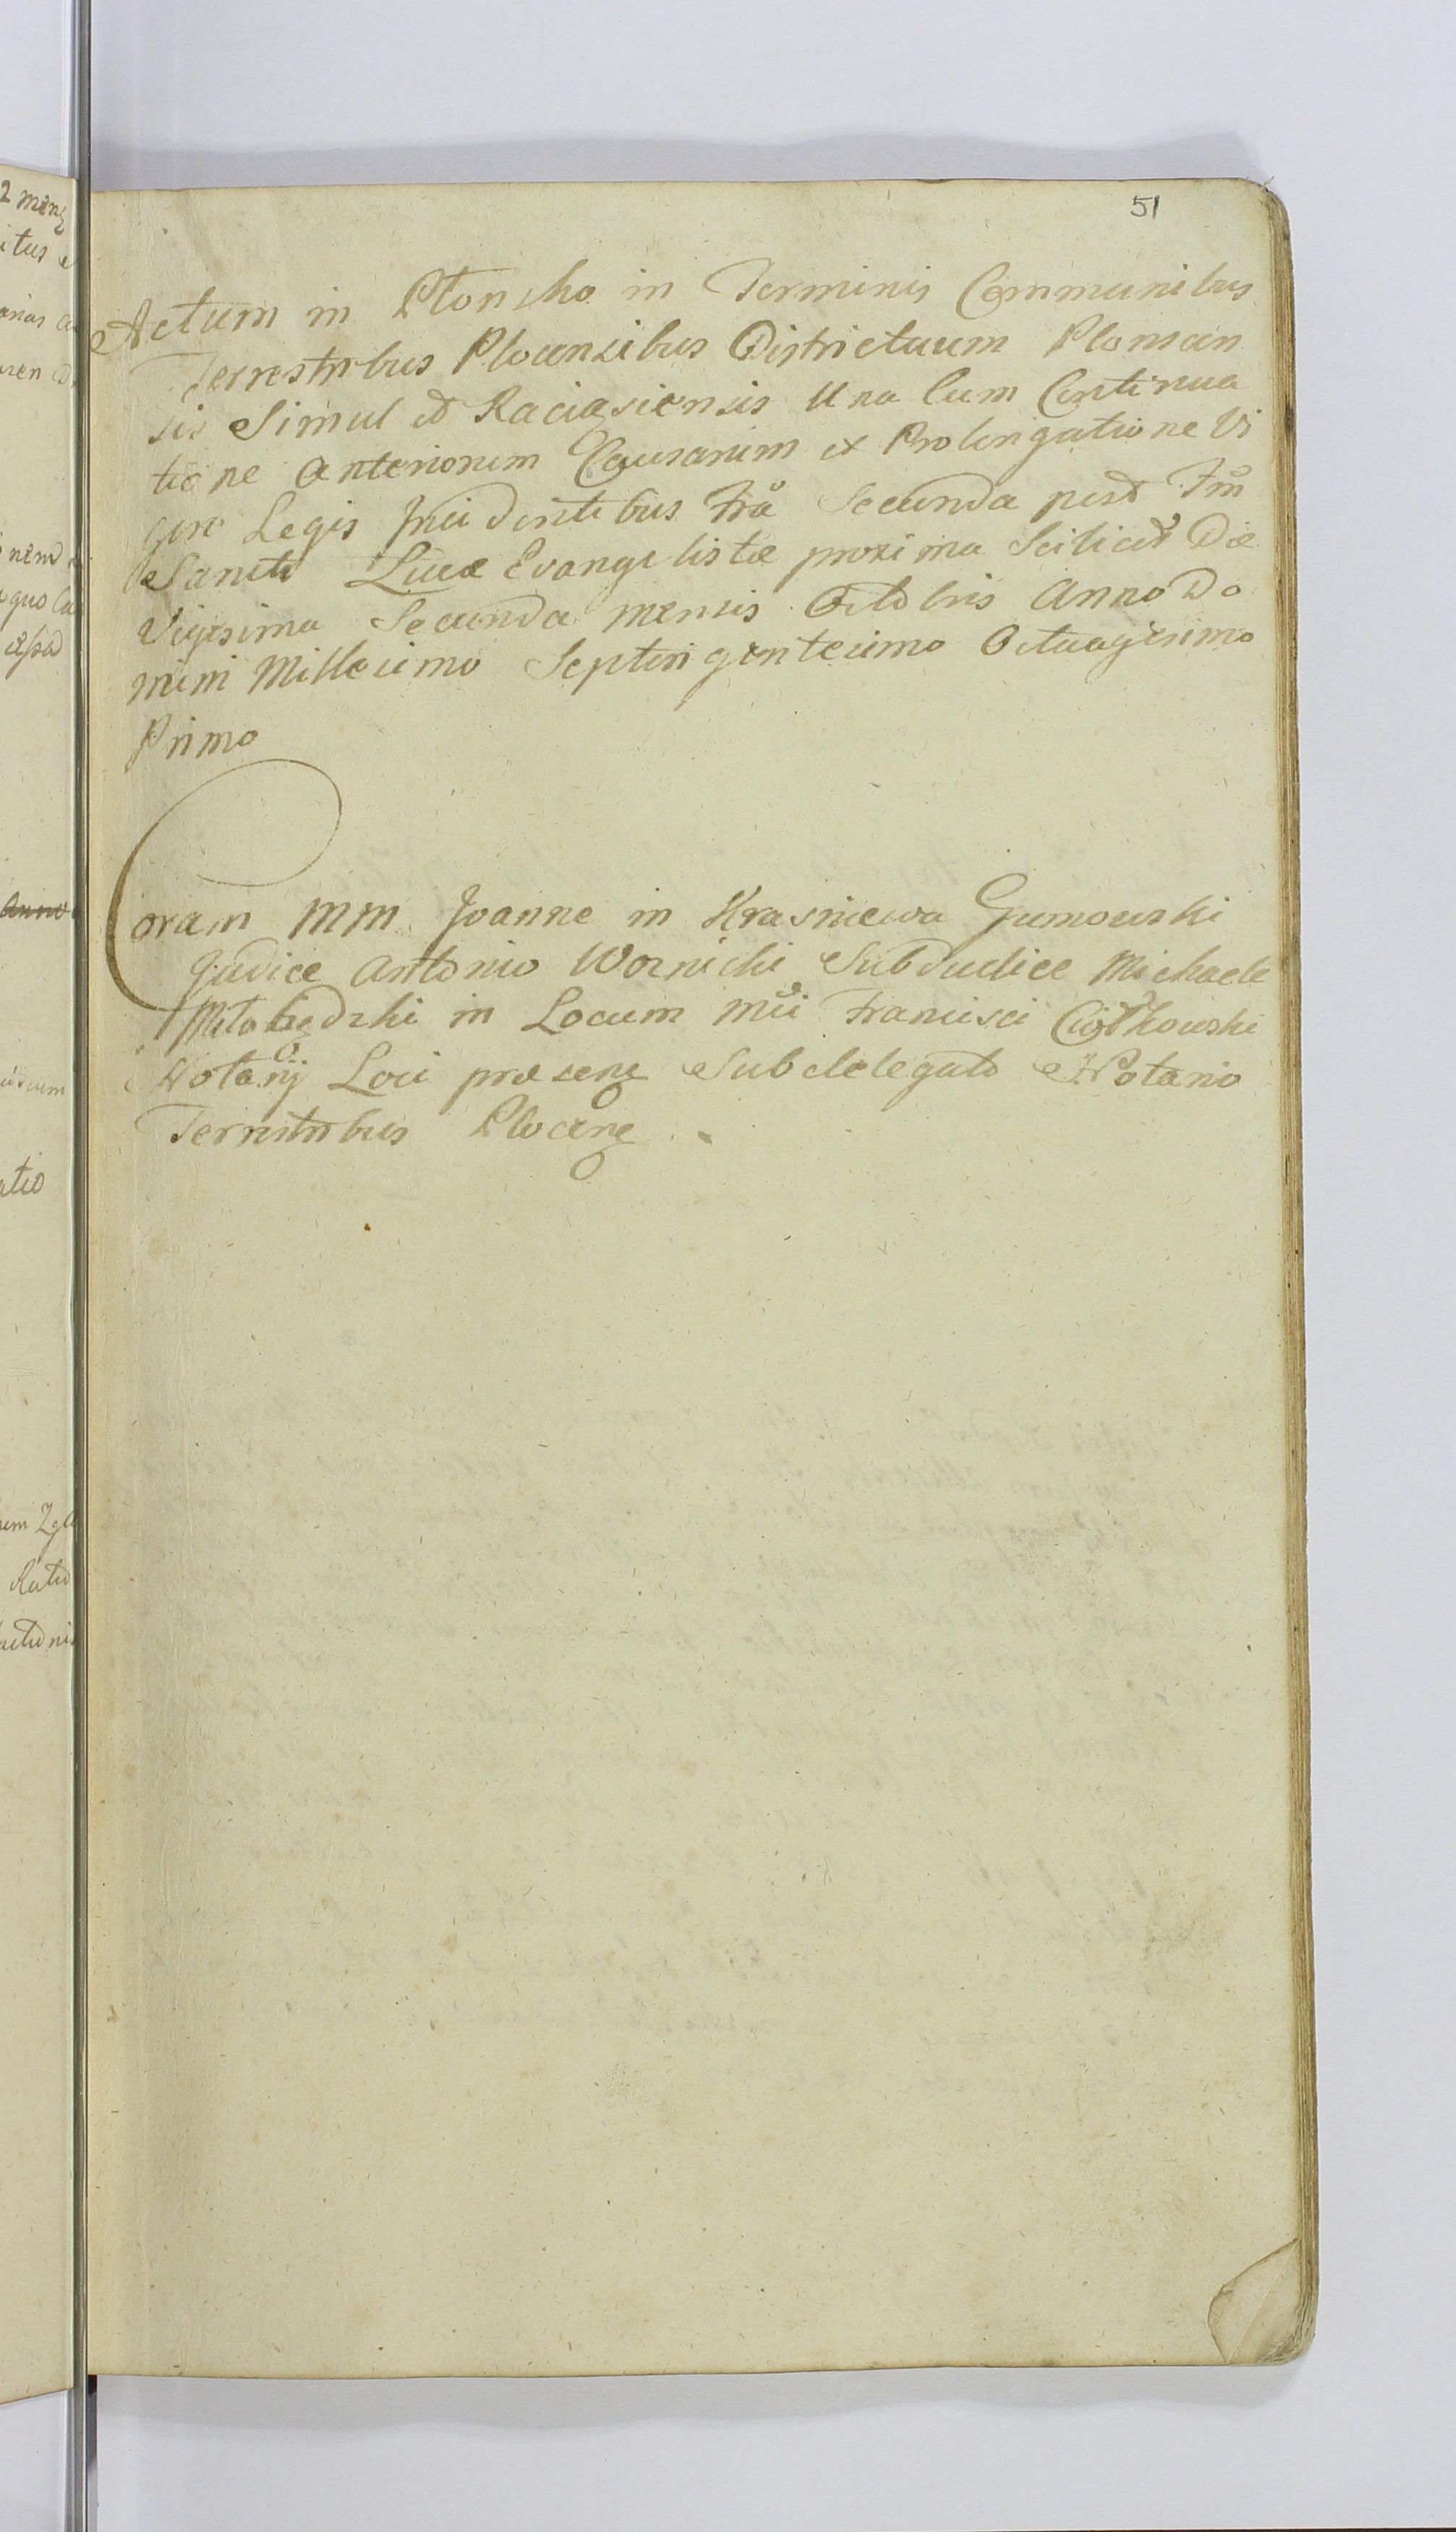 51
Actum in Płonsko in Terminis Communibus
Terrestribus Plocensibus Districtuum Plonscen
sis Simul et Raciązsiensis Una Cum Continua
tione Anteriorum Causarum ex Prolongatione Vi
gore Legis Incidentibus Fra Secunda post Fm
Sancti Lucæ Evangelistæ proxima Scilicet Die
Vigesima Secunda mensis Octobris Anno Do
mini Millesimo Septingentesimo Octuagesimo
Primo
Coram MM Joanne in Krasniewa Gumowski
Judice Antonio Woznicki Subdudice Michaele
in Locum Mci Francisci Ciołkowski
Notarij Loci præsens Subdelegato Notario
Terrestribus Plocens